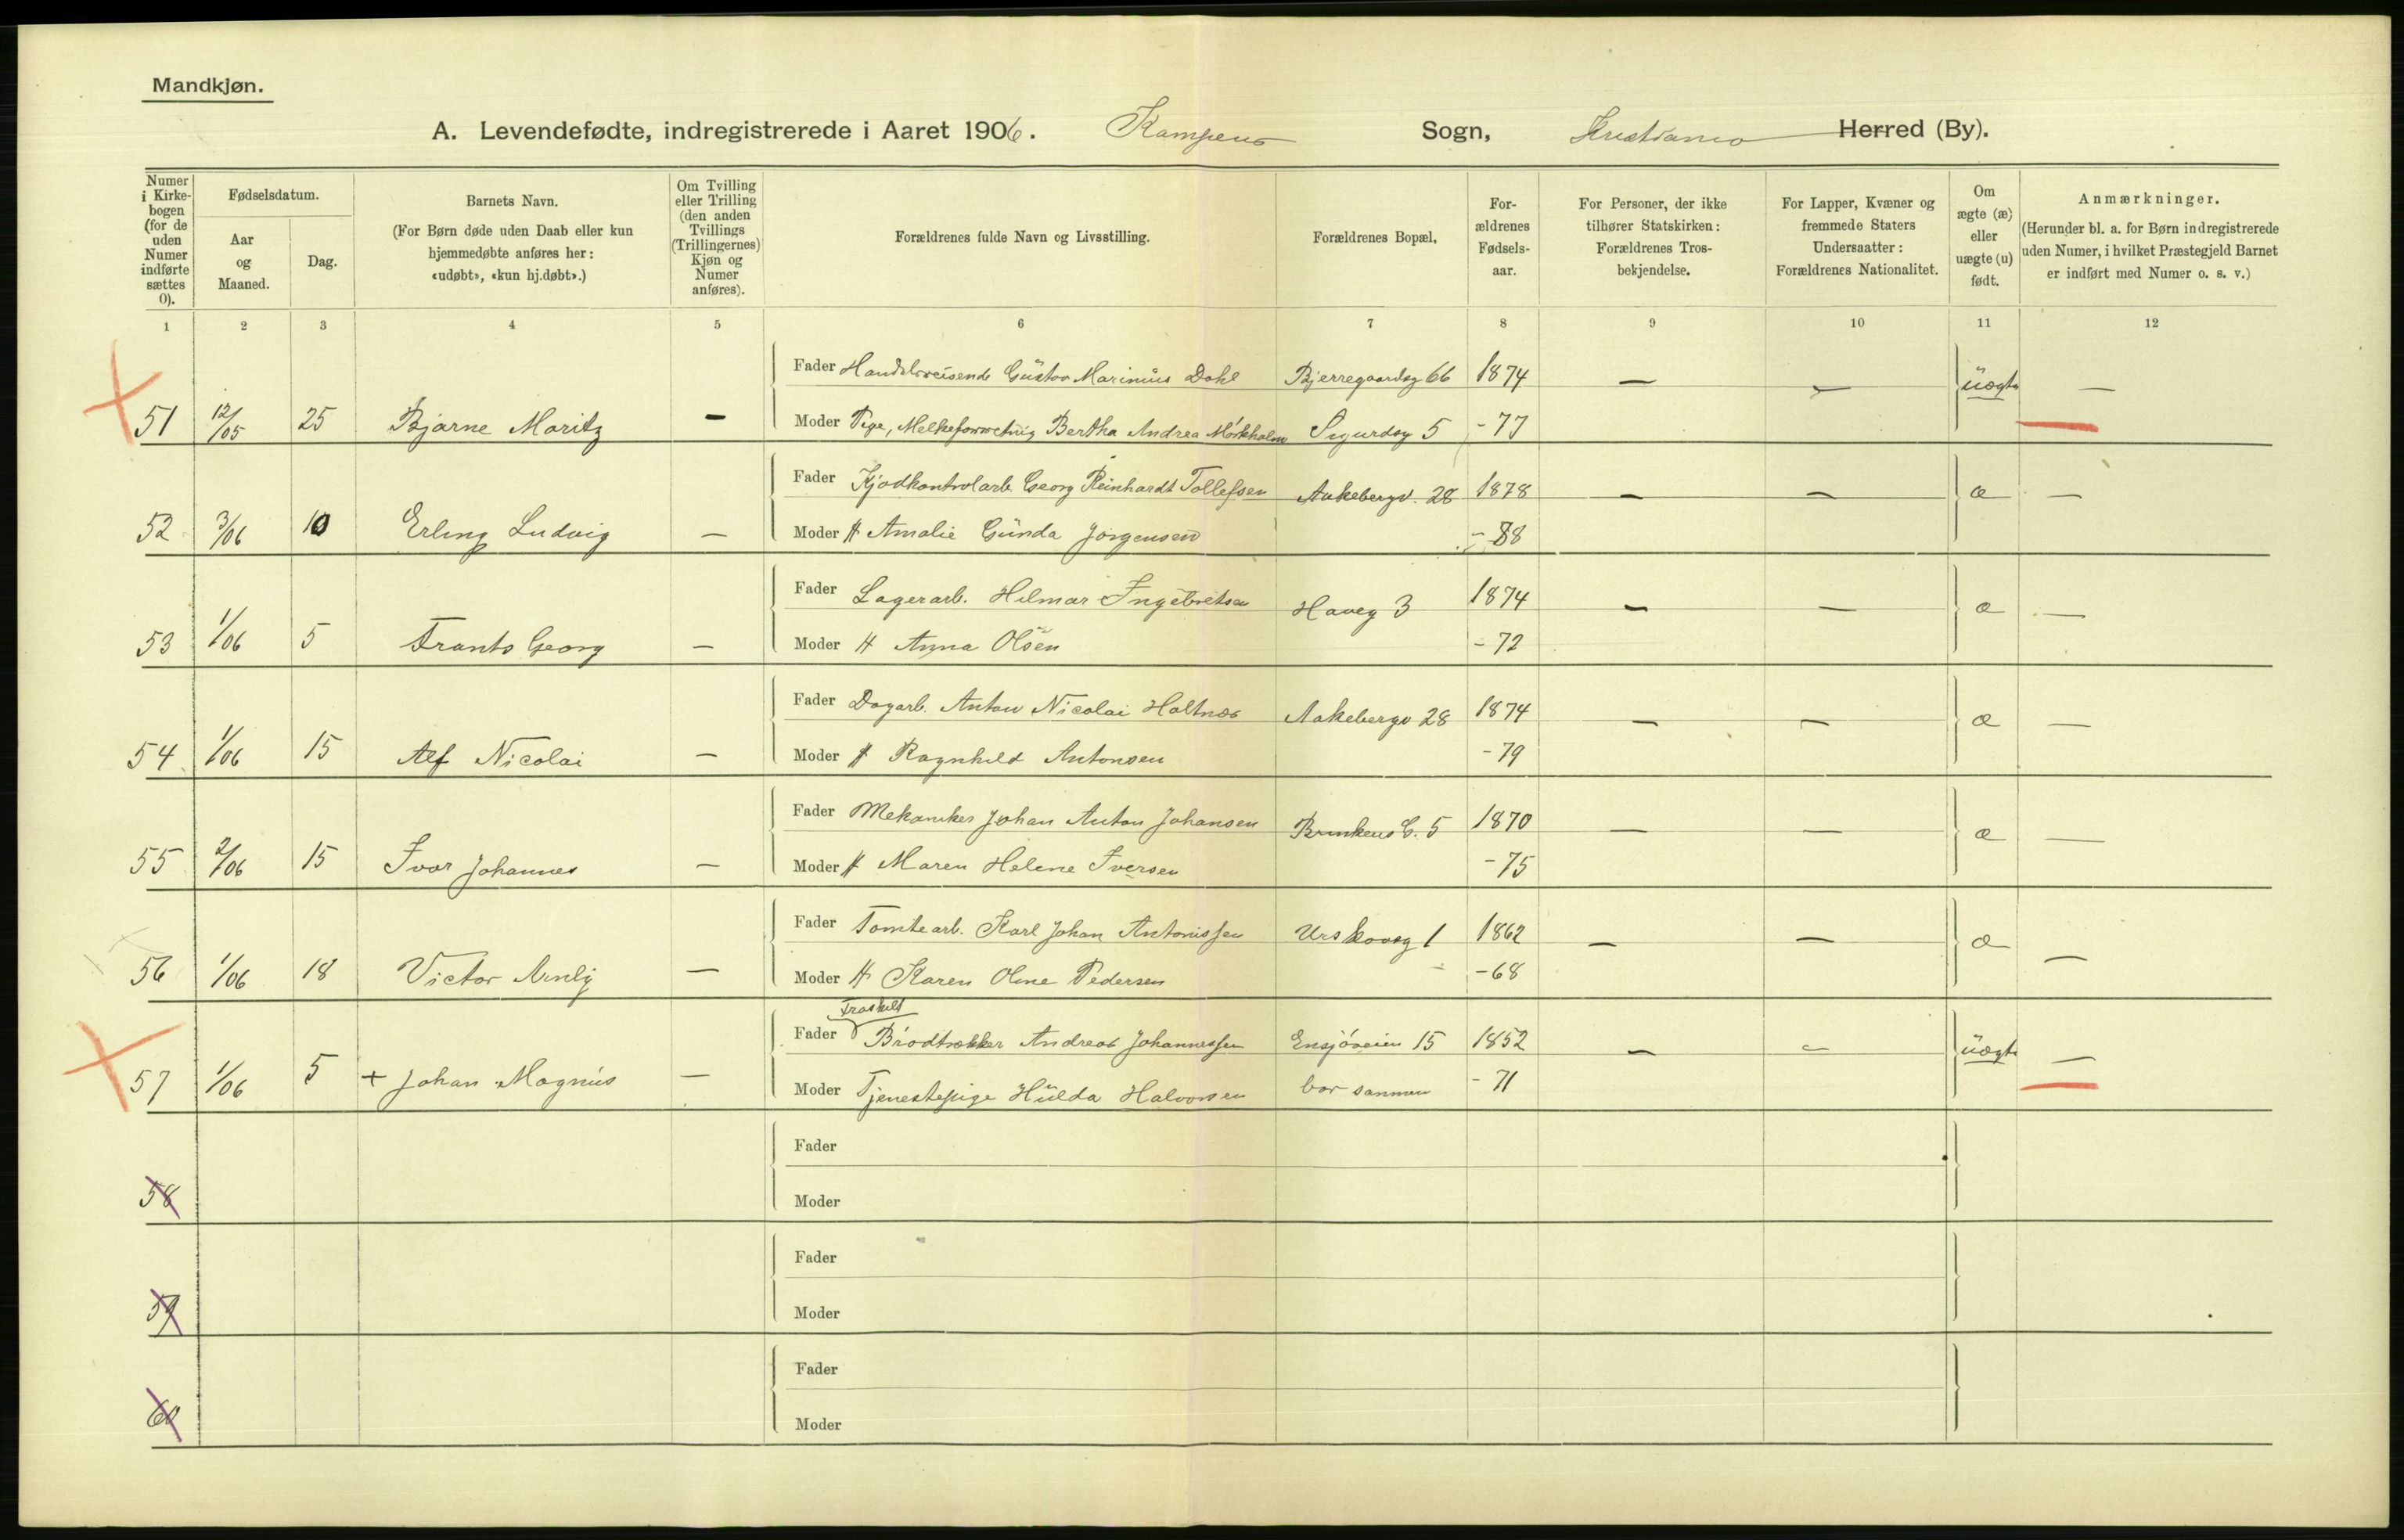 Mandkjøn.
A. Levendefødte, indregistrerede i Aaret 1906. Kampens Sogn, Kristiania Herred (By).
Numer i Kirke-bogen (for de uden Numer indførte sættes 0).
Fødselsdatum.
Aar og Maaned.
Dag.
Barnets Navn.
(For Børn døde uden Daab eller kun hjemmedøbte anføres her: «udøbt», «kun hj.døbt».)
Om Tvilling eller Trilling (den anden Tvillings (Trillingernes) Kjøn og Numer anføres).
Forældrenes fulde Navn og Livsstilling.
Forældrenes Bopæl,
For-ældrenes Fødsels-aar.
For Personer, der ikke tilhører Statskirken: Forældrenes Tros-bekjendelse.
For Lapper, Kvæner og fremmede Staters Undersaatter: Forældrenes Nationalitet.
Om ægte (æ) eller uægte (u) født.
Anmærkninger.
(Herunder bl. a. for Børn indregistrerede uden Numer, i hvilket Præstegjeld Barnet er indført med Numer o. s. v.)
1 2 3 4 5 6 7 8 9 10 11 12
Fader Handelsreisende Gustav Marinius Dahl Bjerregaardsg 66 1874 — — uægte —
51 12/05 25 Bjarne Moritz — Moder Pige, Melkeforretnig Bertha Andrea Mörkholm Sigurdsg 5 - 77
Fader Kjødkontrolarb. Georg Reinhardt Tollefsen Aakebergv. 28 1878 — — æ —
52 3/06 10 Erling Ludvig — Moder H Amalie Gunda Jørgensen - 88
Fader Lagerarb. Hilmar Ingebretsen Haveg 3 1874 — — æ —
53 1/06 5 Frants Georg — Moder H Anna Olsen - 72
Fader Dagarb. Anton Nicolai Holtnæs Aakebergv 28 1874 — — æ —
54 1/06 15 Alf Nicolai — Moder H Ragnhild Antonsen - 79
Fader Mekaniker Johan Anton Johansen Brinkens G. 5 1870 — — æ —
55 2/06 15 Ivar Johannes — Moder H Maren Helene Iversen - 75
Fader Tomtearb. Karl Johan Antonissen Urskovsg 1 1862 — — æ —
56 1/06 18 Victor Arnly — Moder H Karen Oline Pedersen - 68
Fraskilt
Fader Brødtrækker Andreas Johannessen Ensjøveien 15 1852 — — uægte —
57 1/06 5 + Johan Magnus — Moder Tjenestepige Hulda Halvorsen bor sammen - 71
Fader
58 Moder
Fader
59 Moder
Fader
60 Moder